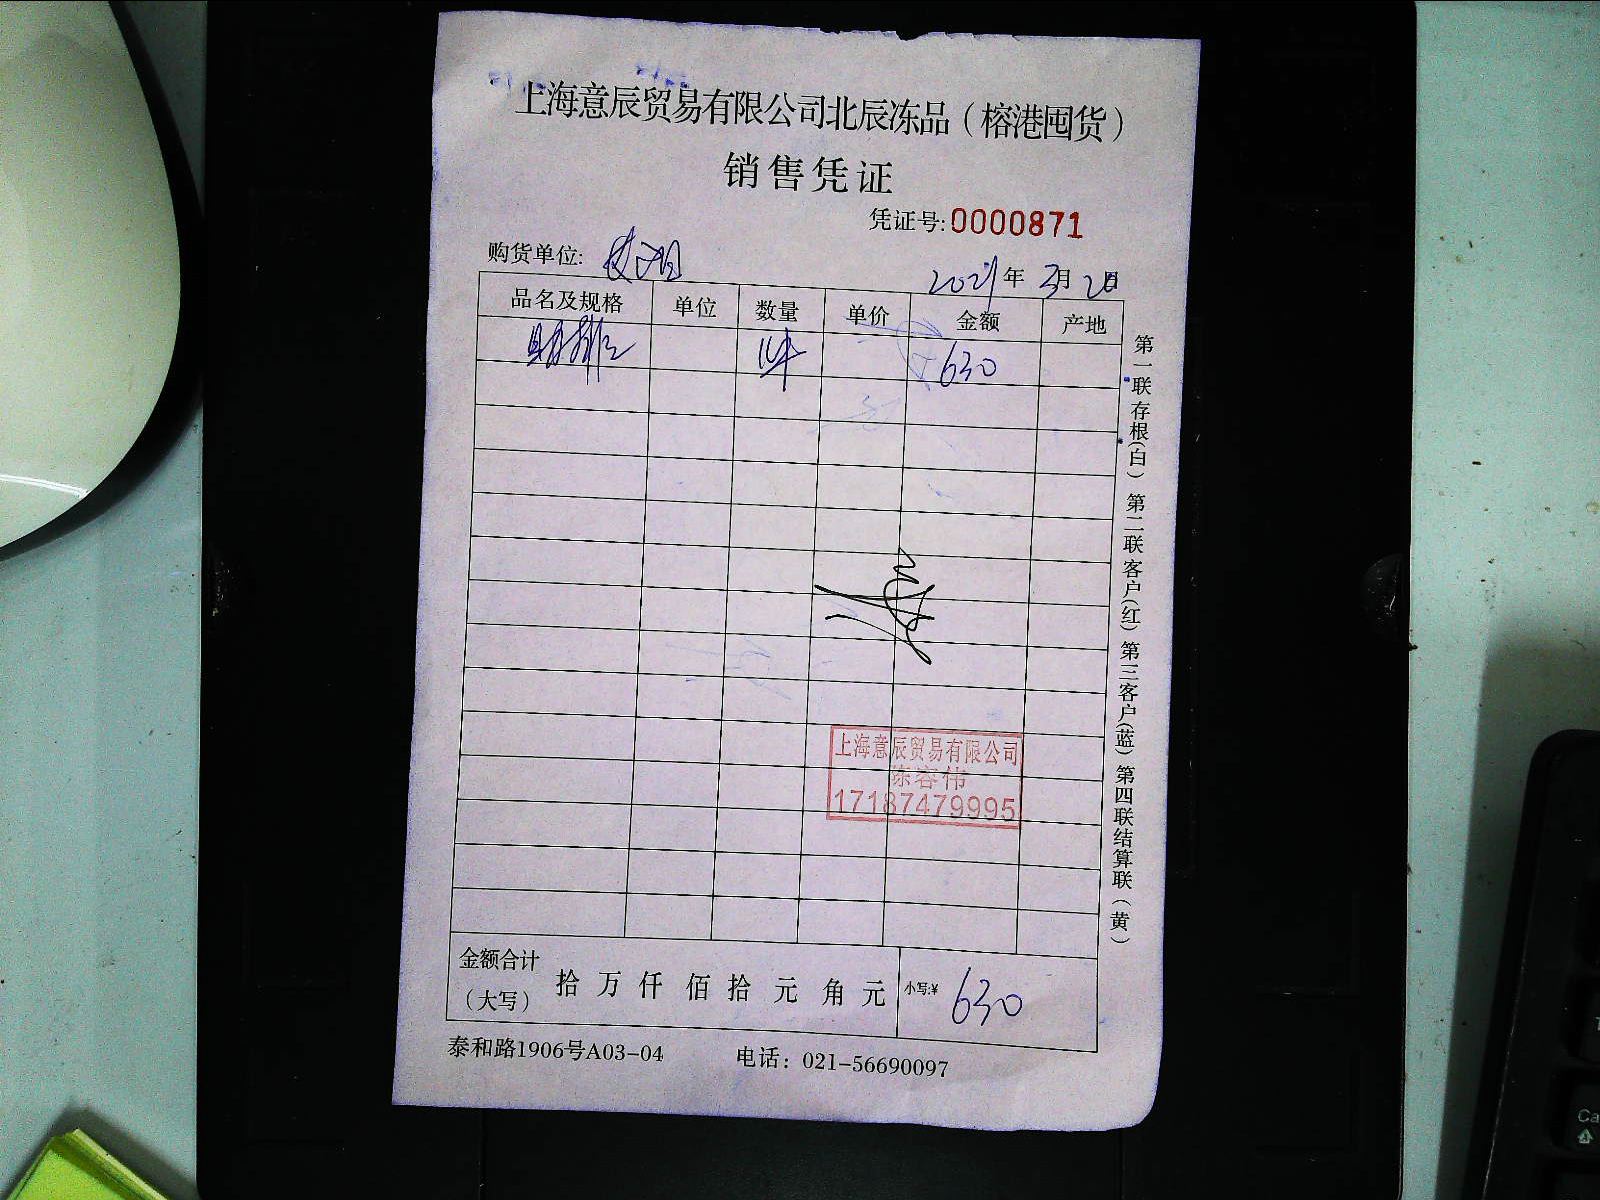 上海意辰贸易有限公司北辰冻品（榕港囤货）
销售凭证
凭证号:0000871
购货单位:
2021年3月20日
品名及规格 单位 数量 单价 金额 产地
630
上海意辰贸易有限公司
陈容伟
17187479995
金额合计（大写） 拾 万 仟 佰 拾 元 角 元 小写:¥ 630
泰和路1906号A03-04 电话：021-56690097
第一联存根(白) 第二联客户(红) 第三客户(蓝) 第四联结算联(黄)